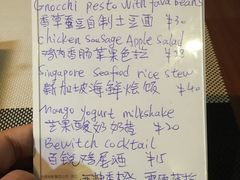 Gnocchi pesto with fava beans
香草蚕豆自制土豆面 ¥30
Chicken Sausage Apple Salad
鸡肉香肠苹果色拉 ¥28
Singapore Seafood rice stew
新加坡海鲜烩饭 ¥40
Mango Yogurt milkshake
芒果酸奶奶昔 ¥20
Bewitch cocktail
鸡尾酒 ¥15